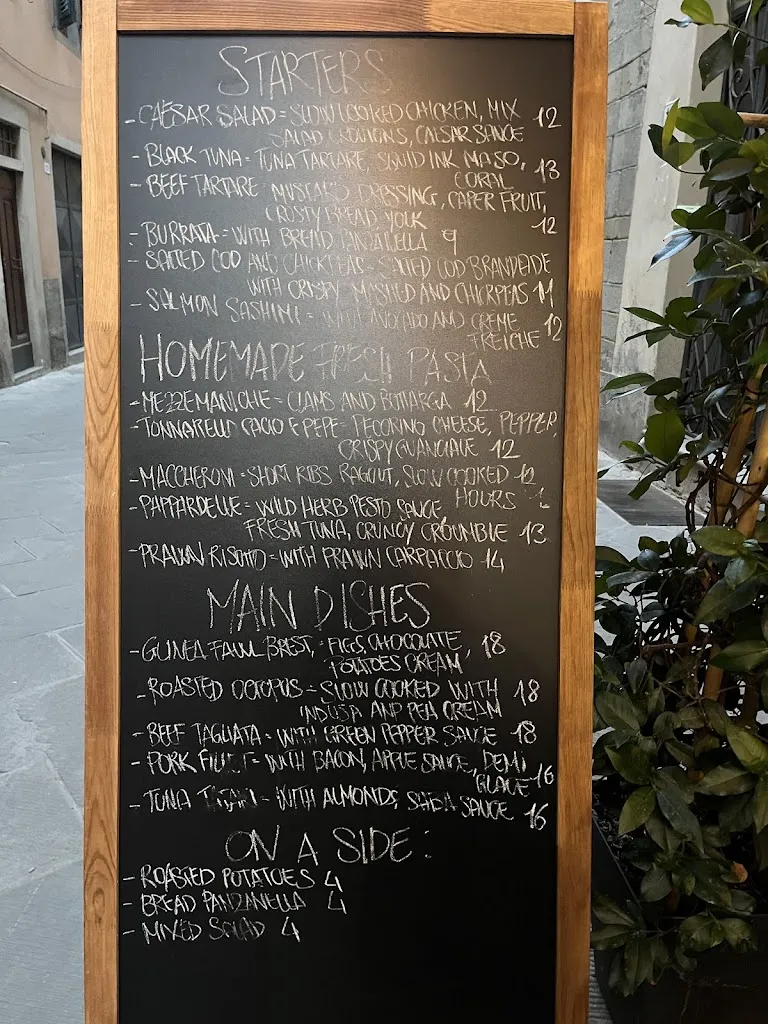 STARTERS
- CAESAR SALAD = SLOW COOKED CHICKEN, MIX 12
SALAD CROUTONS, CAESAR SAUCE
- BLACK TUNA = TUNA TARTARE, SQUID INK MAYO, 13
CORAL
- BEEF TARTARE MUSTARD DRESSING, CAPER FRUIT,
CRUSTY BREAD YOLK 12
- BURRATA = WITH BREAD PANZANELLA 9
- SALTED COD AND CHICKPEAS = SALTED COD BRANDEIDE
WITH CRISPY MASHED AND CHICKPEAS 11
- SALMON SASHIMI = WITH AVOCADO AND CREME
FREICHE 12
HOMEMADE FRESH PASTA
- MEZZEMANICHE = CLAMS AND BOTTARGA 12
- TONNARELLI CACIO E PEPE = PECORINO CHEESE, PEPPER,
CRISPY GUANCIALE 12
- MACCHERONI = SHORT RIBS RAGOUT, SLOW COOKED 12
HOURS
- PAPPARDELLE = WILD HERB PESTO SAUCE,
FRESH TUNA, CRUNCY CROUMBLE 13
- PRAWN RISOTTO = WITH PRAWN CARPACCIO 14
MAIN DISHES
- GUINEA FAWL BREST, FIGS, CHOCOLATE, 18
POTATOES CREAM
- ROASTED OCTOPUS = SLOW COOKED WITH 18
INDUJA AND PEA CREAM
- BEEF TAGLIATA = WITH GREEN PEPPER SAUCE 18
- PORK FILLET = WITH BACON, APPLE SAUCE, DEMI
GLACE 16
- TUNA = WITH ALMONDS, SAUCE 16
ON A SIDE:
- ROASTED POTATOES 4
- BREAD PANZANELLA 4
- MIXED SALAD 4